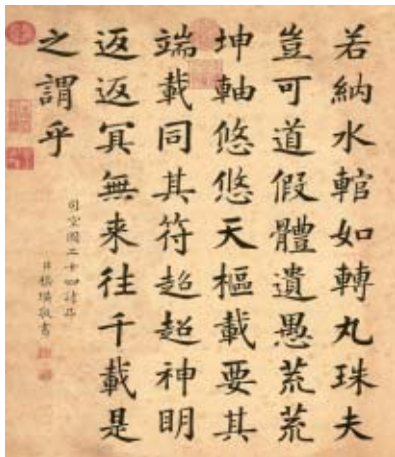 若納水輨如轉丸珠夫
豈可道假體遺愚荒荒
坤軸悠悠天樞載要其
端載同其符超超神明
返返冥無来往千載是
之謂乎
司空圖二十四詩品
臣嵇璜敬書